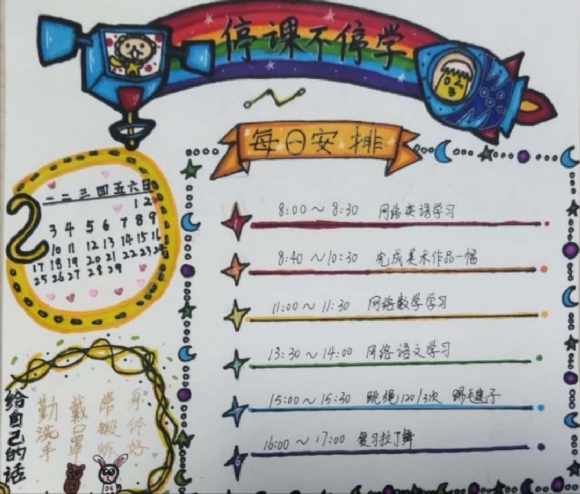 停课不停学
每日安排
2
一二三四五六日
1 2
3 4 5 6 7 8 9
10 11 12 13 14 15 16
17 18 19 20 21 22 23 24
25 26 27 28 29
8:00～8:30 网络英语学习
8:40～10:30 完成美术作品一幅
11:00～11:30 网络数学学习
13:30～14:00 网络语文学习
15:00～15:30 跳绳120/3次 踢毽子
16:00～17:00 复习拉丁舞
给自己的话
勤洗手
戴口罩
常锻炼
身体好